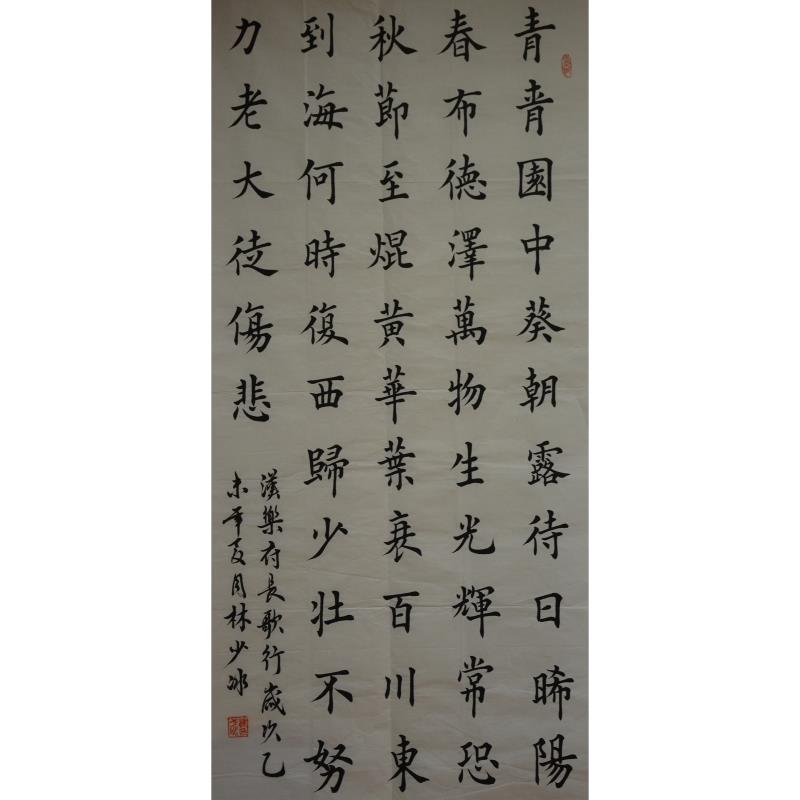 青青園中葵朝露待日晞陽
春布德澤萬物生光輝常恐
秋節至焜黃華葉衰百川東
到海何時復西歸少壯不努
力老大徒傷悲
漢樂府長歌行歲次乙
未年夏月林少冰